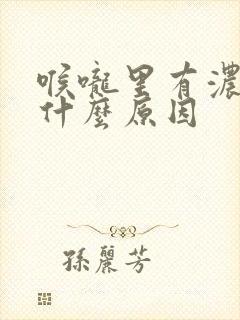 喉嚨里有濃
什麼原因
孫麗芳